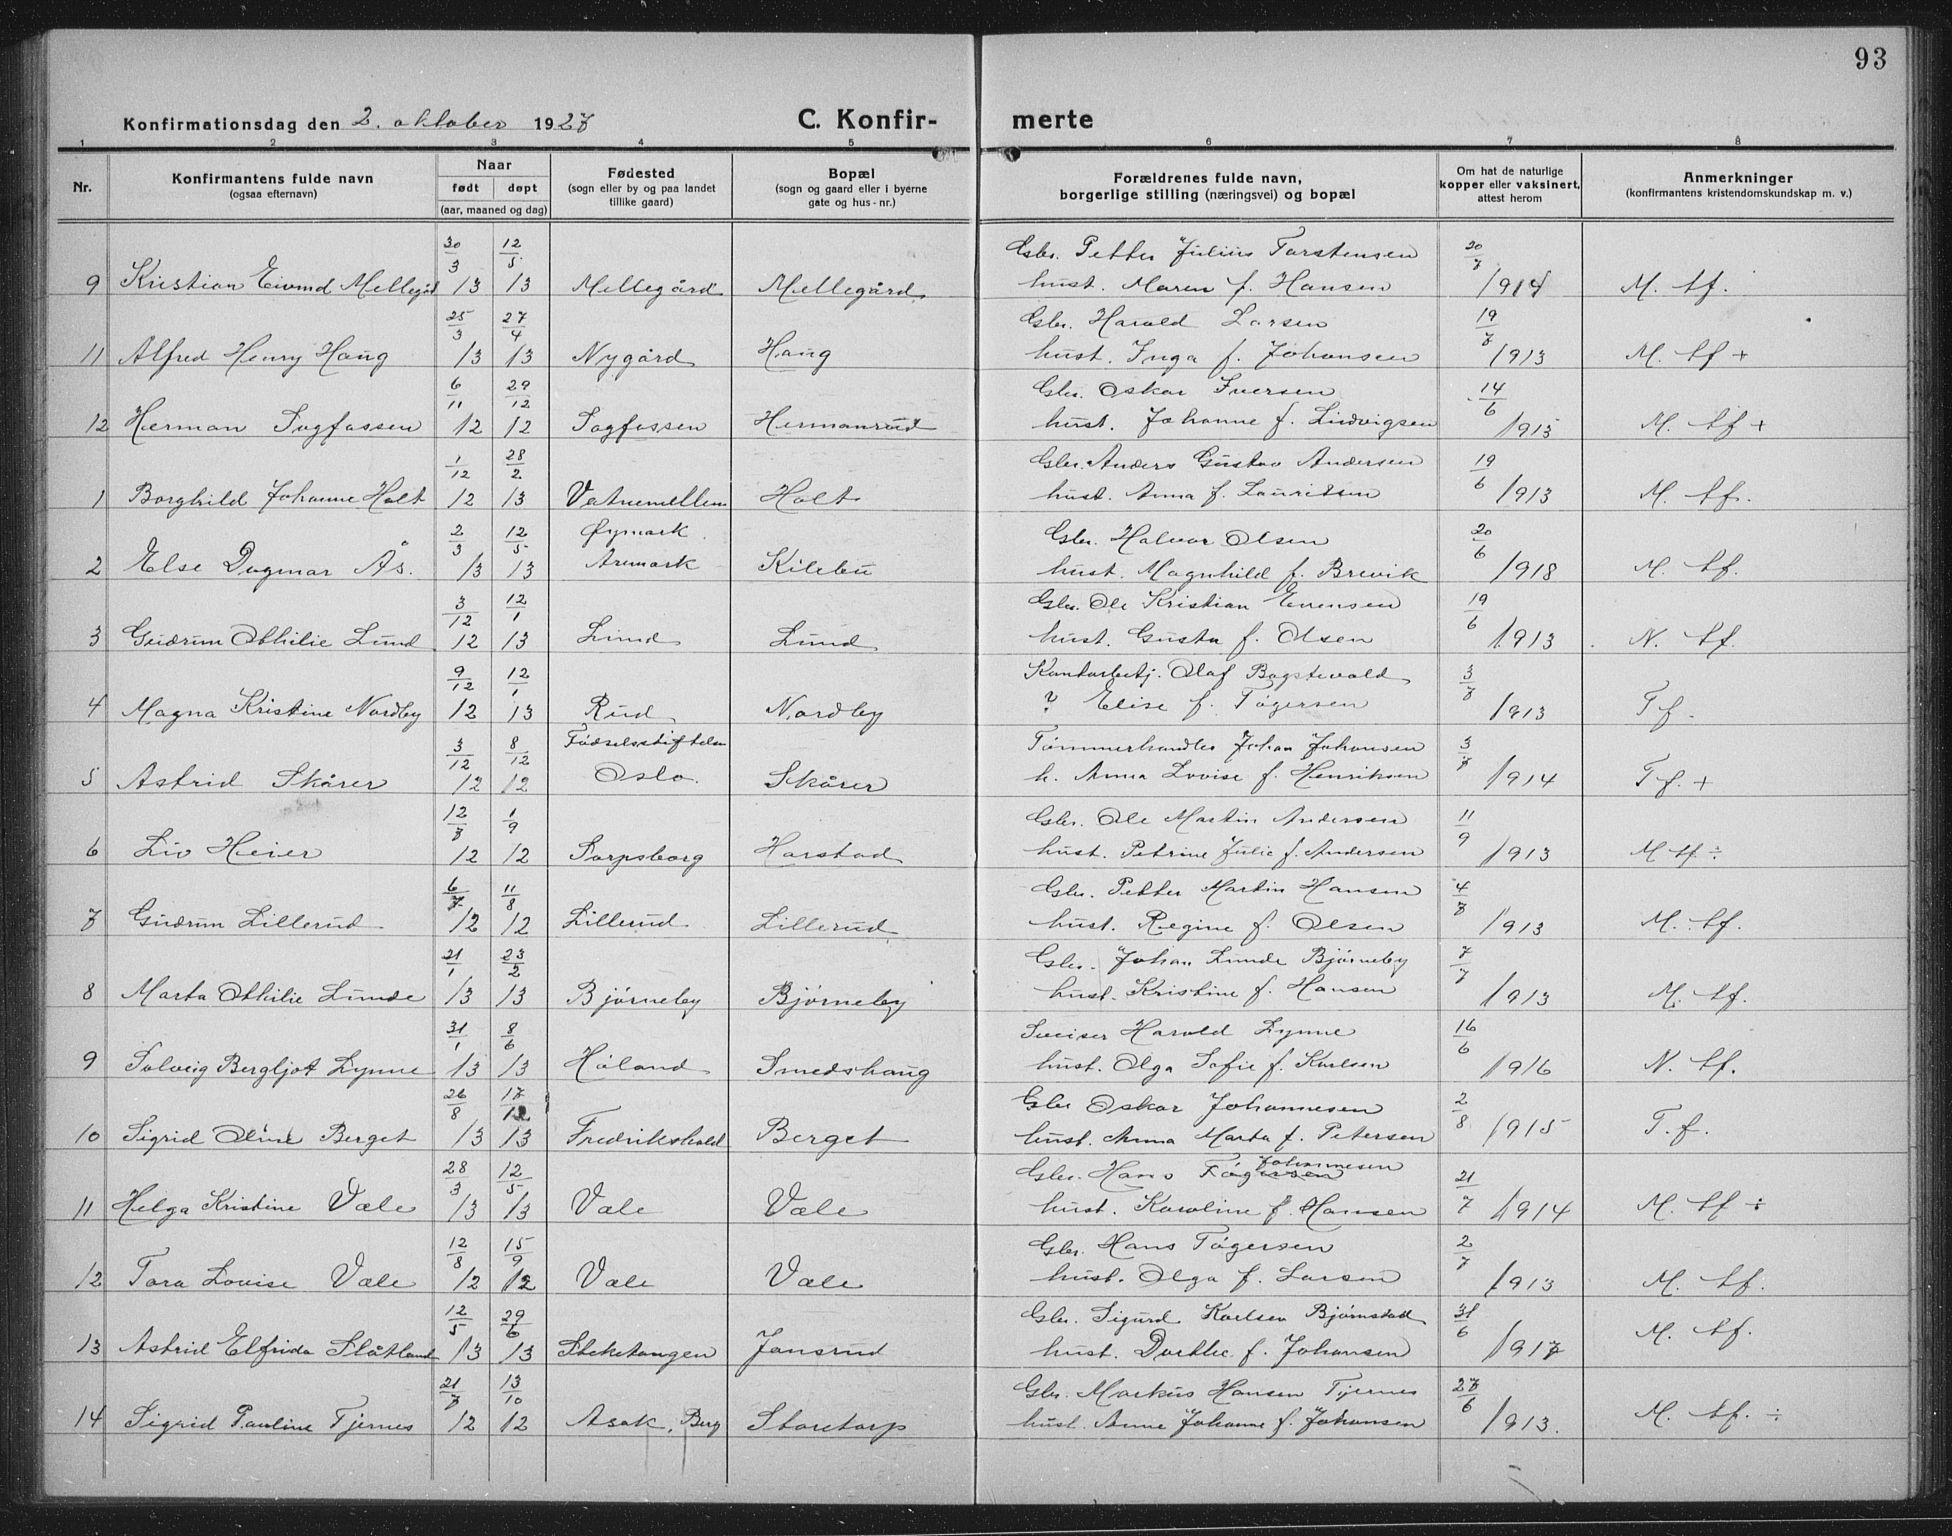 93
Konfirmationsdag den 2. oktober 1927 C. Konfirmerte
1 2 3 4 5 6 7 8
Nr. Konfirmantens fulde navn (ogsaa efternavn) Naar født døpt (aar, maaned og dag) Fødested (sogn eller by og paa landet tillike gaard) Bopæl (sogn og gaard eller i byerne gate og hus-nr.) Forældrenes fulde navn, borgerlige stilling (næringsvei) og bopæl Om hat de naturlige kopper eller vaksinert, attest herom Anmerkninger (konfirmantens kristendomskundskap m. v.)
30/3 12/5 Gbr. Petter Julius Torstensen 20/7
9 Kristian Eivind Mellegård /13 /13 Mellegård Mellegård hust. Maren f. Hansen /1914 M. tf.
25/3 27/4 Gbr. Harald Larsen 19/7
11 Alfred Henry Haug /13 /13 Nygård Haug hust. Inga f. Johansen /1913 M. tf +
6/11 29/12 Gbr. Oskar Iversen 14/6
12 Herman Sagfossen /12 /12 Sagfossen Hermanrud hust. Johanne f. Ludvigsen /1915 M. tf +
1/12 28/2 Gbr. Anders Gustav Andersen 19/6
1 Borghild Johanne Holt /12 /13 Vatnemellem Holt hust. Anna f. Lauritsen /1913 M. tf.
2/3 12/5 Øymark Gbr. Halvor Olsen 20/6
2 Else Dagmar Ås. /13 /13 Aremark Kilebu hust. Magnhild f. Brevik /1918 M. tf.
3/12 12/1 Gbr. Ole Kristian Evensen 19/6
3 Gudrun Othilie Lund /12 /13 Lund Lund hust. Gusta f. Olsen /1913 N. tf.
9/12 12/1 Kontorbetj. Olaf Bogstevold 3/7
4 Magna Kristine Nordby /12 /13 Rud Nordby ? Elise f. Tøgersen /1913 T f.
3/12 8/12 Fødselsstiftelsen Tømmerhandler Johan Johansen 3/7
5 Astrid Skårer /12 /12 Oslo. Skårer h. Anna Lovise f. Henriksen /1914 T f. +
12/7 1/9 Gbr. Ole Martin Andersen 11/9
6 Liv Heier /12 /12 Sarpsborg Harstad hust. Petrine Julie f. Andersen /1913 M tf ÷
6/7 11/8 Gbr. Petter Martin Hansen 4/7
7 Gudrun Lillerud /12 /12 Lillerud Lillerud hust. Regine f. Olsen /1913 M. tf.
21/1 23/2 Gbr. Johan Lunde Bjørneby 7/7
8 Marta Othilie Lunde /13 /13 Bjørneby Bjørneby hust. Kristine f. Hansen /1913 M. tf.
31/1 8/6 Sveiser Harald Lynne 16/6
9 Solveig Bergljot Lynne /13 /13 Høland Smedshaug hust. Olga Sofie f. Karlsen /1916 N. tf.
26/8 17/12 Gbr Oskar Johannesen 2/8
10 Sigrid Oline Berget /13 /13 Fredrikshald Berget hust. Anna Marta f. Petersen /1915 T. f.
28/3 12/5 Gbr. Hans Tøgersen Johannesen 21/7
11 Helga Kristine Væle /13 /13 Væle Væle hust. Karoline f. Hansen /1914 M. tf ÷
12/8 15/9 Gbr. Hans Tøgersen 2/7
12 Tora Lovise Væle /12 /12 Væle Væle hust. Olga f. Larsen /1913 M. tf.
12/5 29/6 Gbr. Sigurd Karlsen Bjørnstad 31/6
13 Astrid Elfrida Slåtland /13 /13 Steketangen Jansrud hust. Dorthe f. Johansen /1917 M. tf.
21/7 13/10 Gbr. Markus Hansen Tjernes 27/6
14 Sigrid Pauline Tjernes /12 /12 Asak, Berg Storetorp hust. Anne Johanne f. Johansen /1913. M. tf. ÷